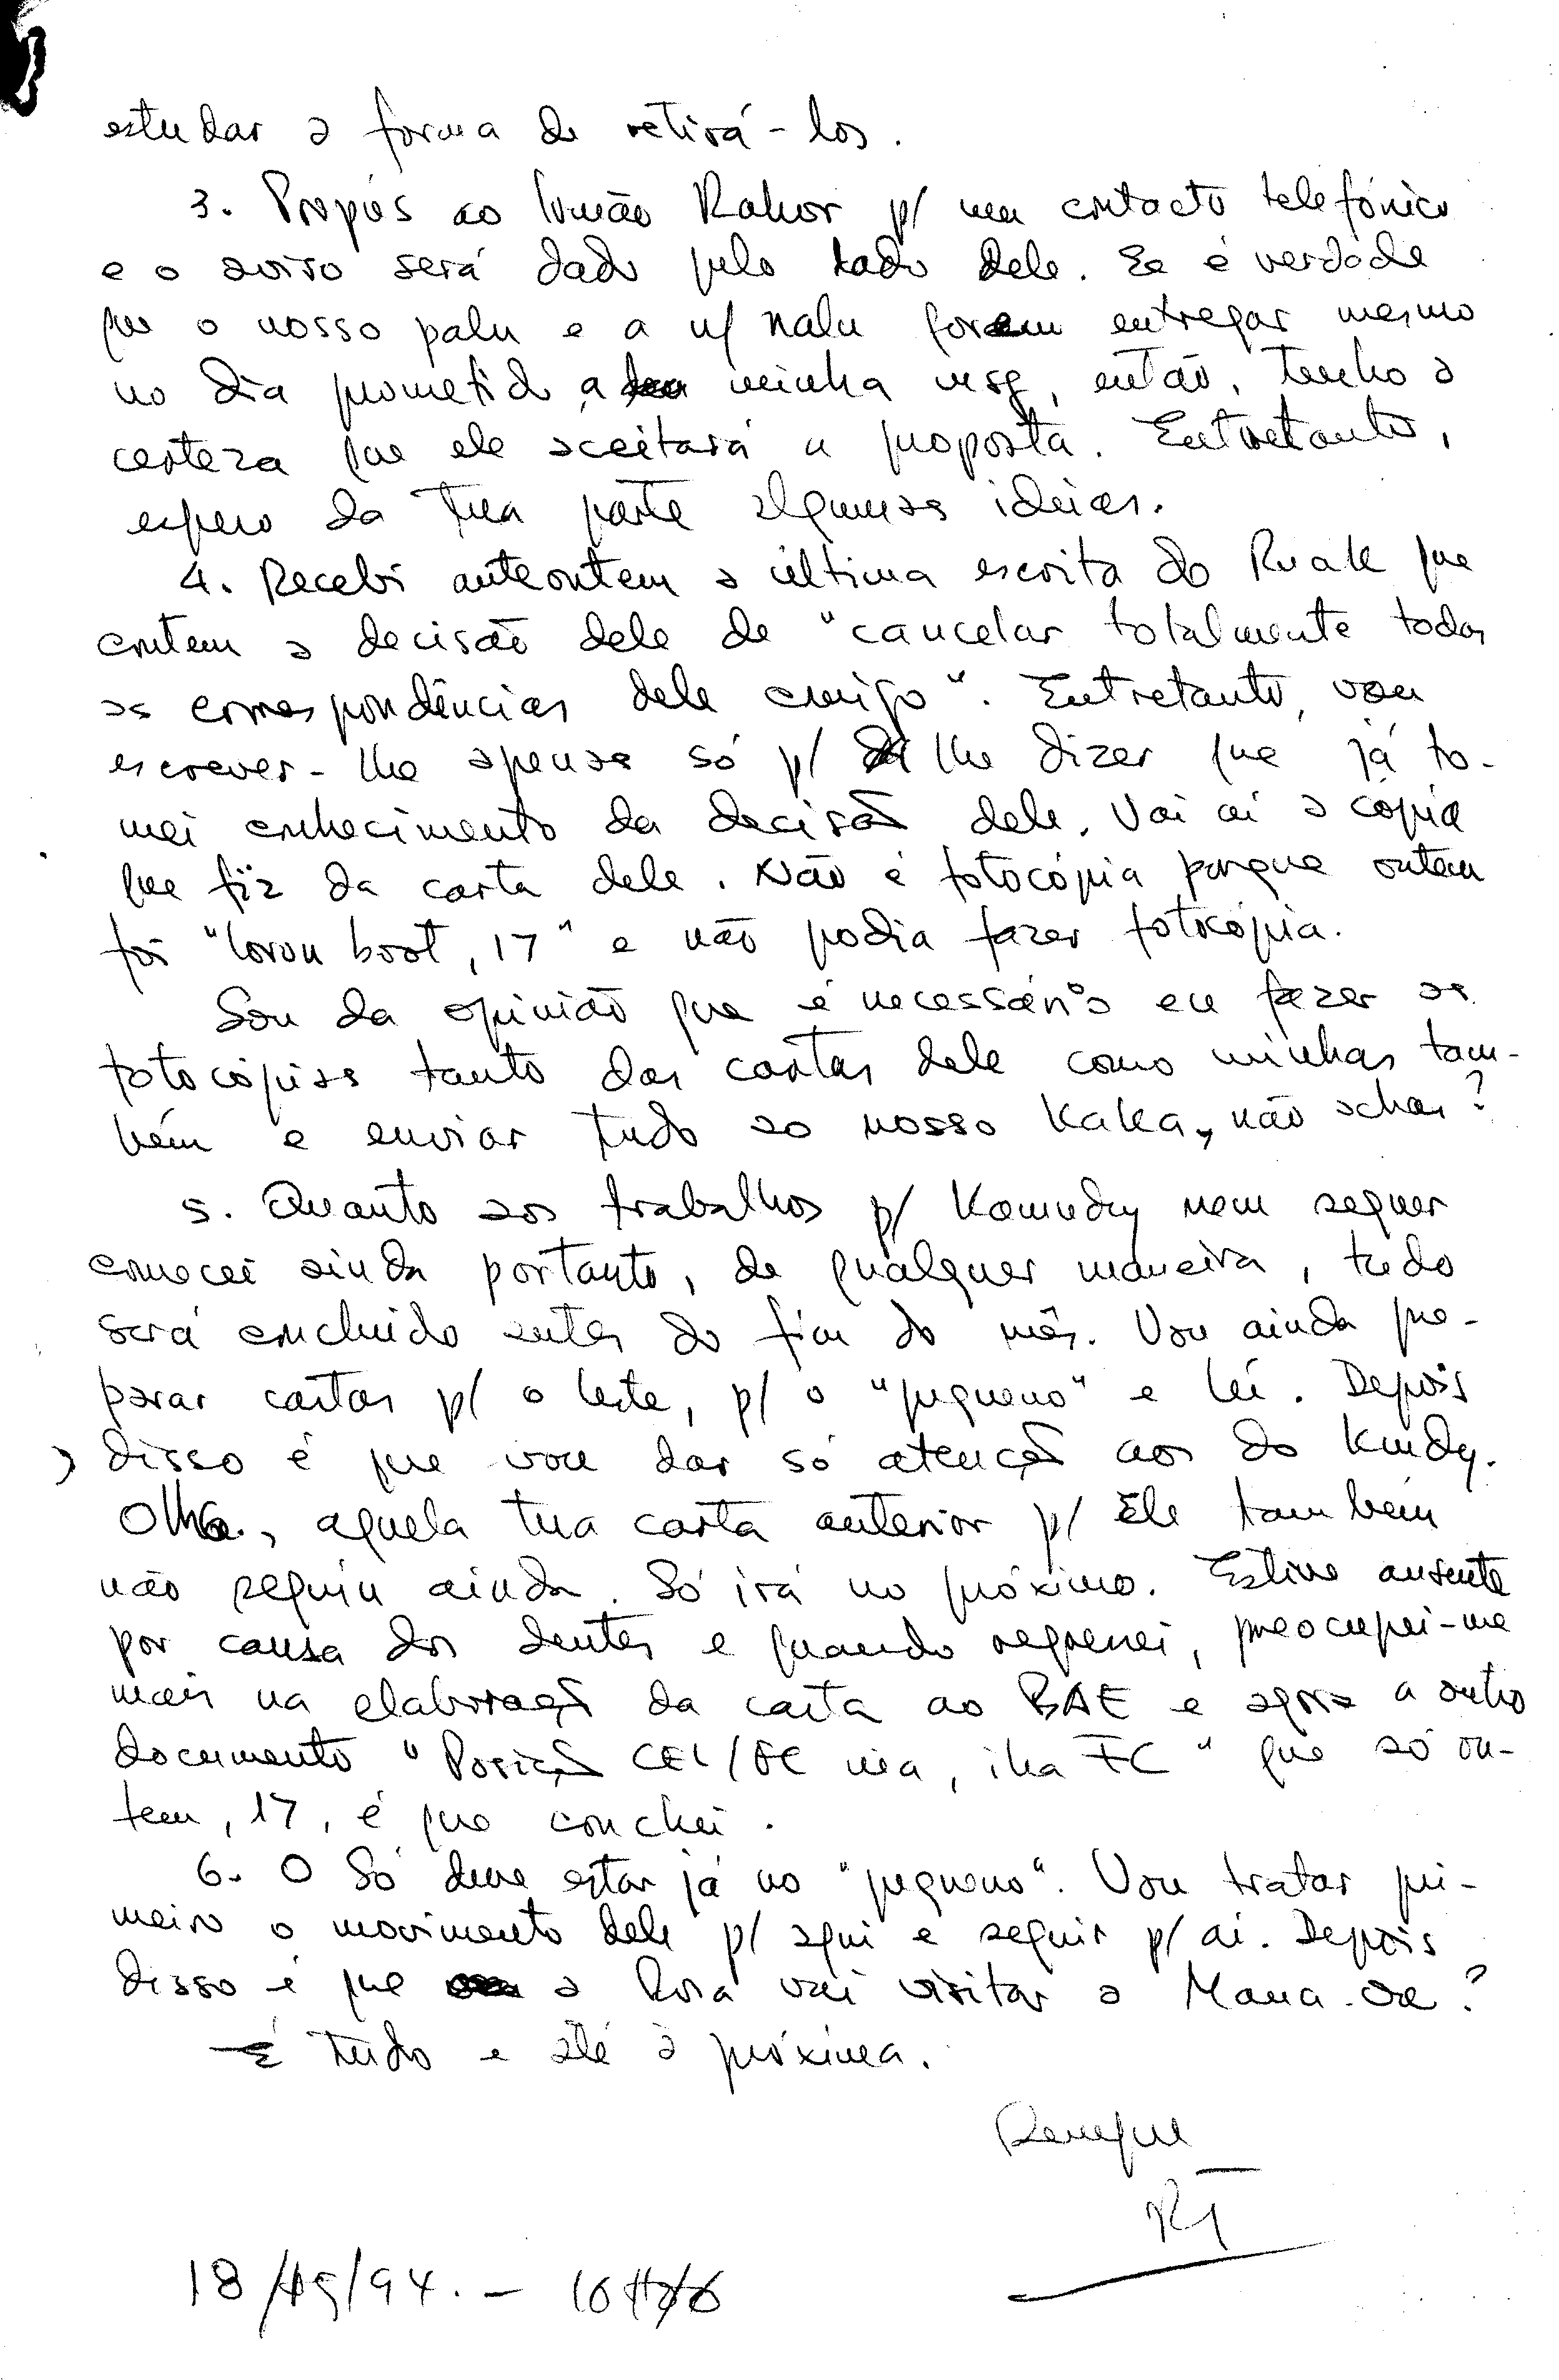 estudar a forma de retirá-los.
3. Propús ao Irmão Rahor p/ um contacto telefónico
e o aviso será dado pelo lado dele. Se é verdade
que o nosso palu e a n/ nalu foram entregar mesmo
no dia prometido a minha msg, então, tenho a
certeza que ele aceitará a proposta. Entretanto,
espero da tua parte algumas ideias.
4. Recebi anteontem a última escrita do Ruak que
contem a decisão dele de "cancelar totalmente todas
as correspondências dele comigo". Entretanto, vou
escrever-lhe apenas só p/ lhe dizer que já to-
mei conhecimento da decisão dele. Vai aí a cópia
que fiz da carta dele. Não é fotocópia porque ontem
foi "loron boot, 17" e não podia fazer fotocópia.
Sou da opinião que é necessário eu fazer as
fotocópias tanto das cartas dele como minhas tam-
bém e enviar tudo ao nosso Kaka, não achas?
5. Quanto aos trabalhos p/ nem sequer
comecei ainda portanto, de qualquer maneira, tudo
será concluido antes do fim do mês. Vou ainda pre-
parar cartas p/ o leste, p/ o "pequeno" e Lú. Depois
disso é que vou dar só atenção aos do
Olha, aquela tua carta anterior p/ Ele também
não seguiu ainda. Só irá no próximo. Estive ausente
por causa dos dentes e quando regressei, preocupei-me
mais na elaboração da carta ao BAE e agora a outro
documento "Posição CEL/FC ilha FC" que só on-
tem, 17, é que conclui.
6. O Só deve estar já no "pequeno". Vou tratar pri-
meiro o movimento dele p/ aqui e seguir p/ aí. Depois
disso é que a Rosa vai visitar a Mana-Oe?
É tudo e até à próxima.
18/ /94. -